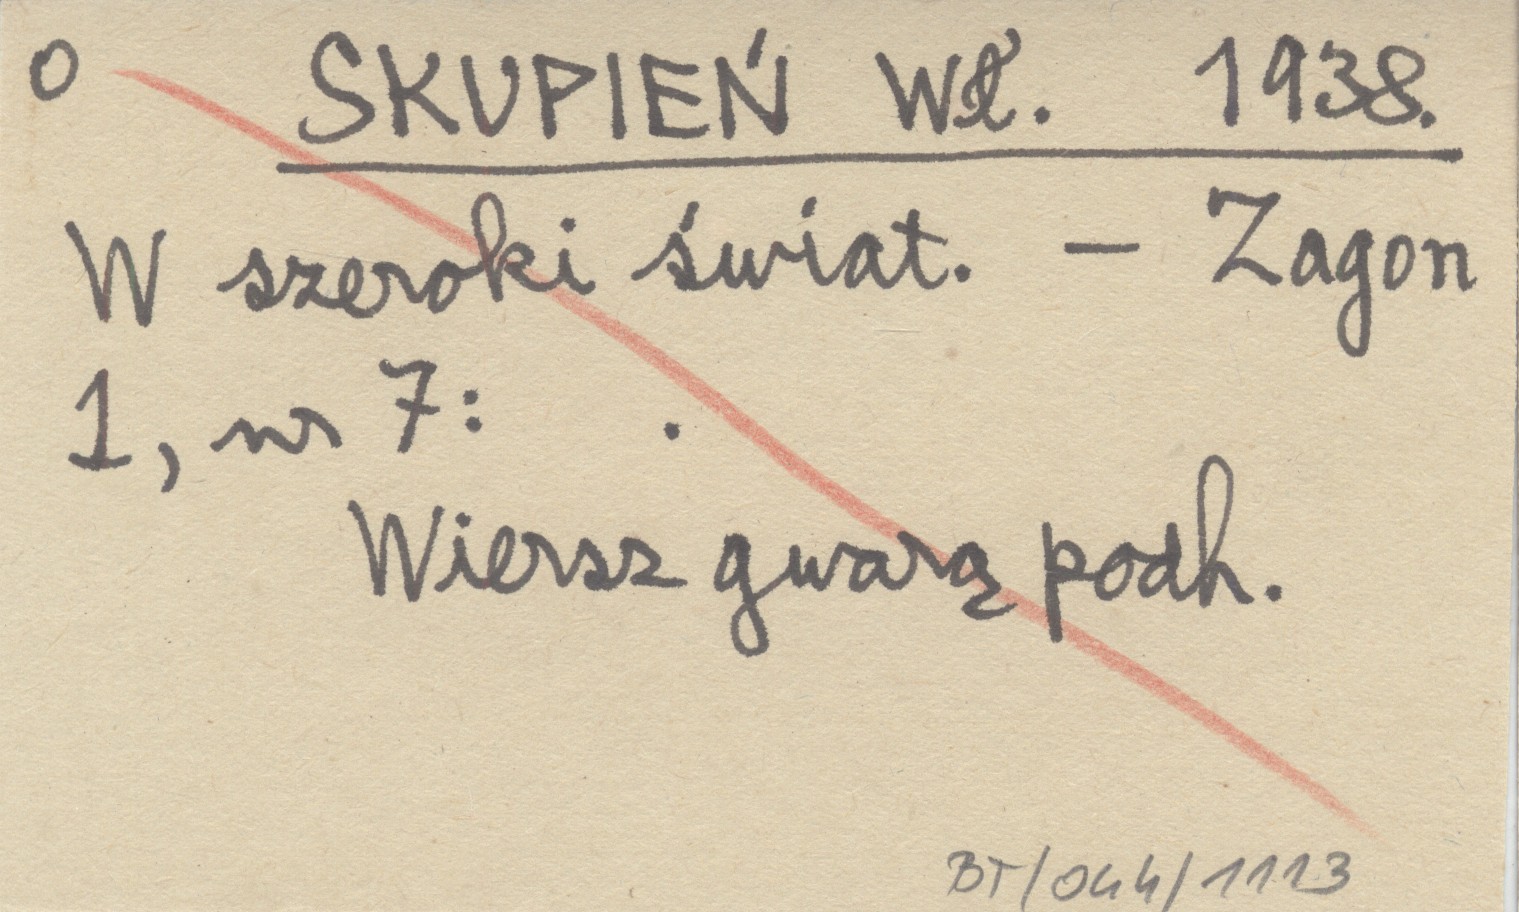 o SKUPIEŃ Wł. 1938.
W szeroki świat. — Zagon
1, nr 7: .
Wiersz gwarą podh.
BT/044/1113